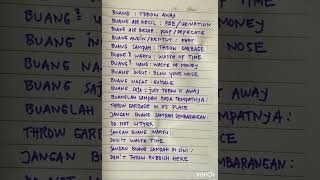 BUANG : THROW AWAY
BUANG AIR KECIL : PEE / URINATION
BUANG AIR BESAR : POOP / DEFECATE
BUANG ANGIN / KENTUT : FART
BUANG SAMPAH : THROW GARBAGE
BUANG² WAKTU : WASTE OF TIME
BUANG² UANG : WASTE OF MONEY
BUANG INGUS : BLOW YOUR NOSE
BUANG NAFAS : EXHALE
BUANG SAJA : JUST THROW IT AWAY
BUANGLAH SAMPAH PADA TEMPATNYA :
THROW GARBAGE IN ITS PLACE
JANGAN BUANG SAMPAH SEMBARANGAN :
DO NOT LITTER
JANGAN BUANG WAKTU :
DON'T WASTE TIME
JANGAN BUANG SAMPAH DI SINI :
DON'T THROW RUBBISH HERE